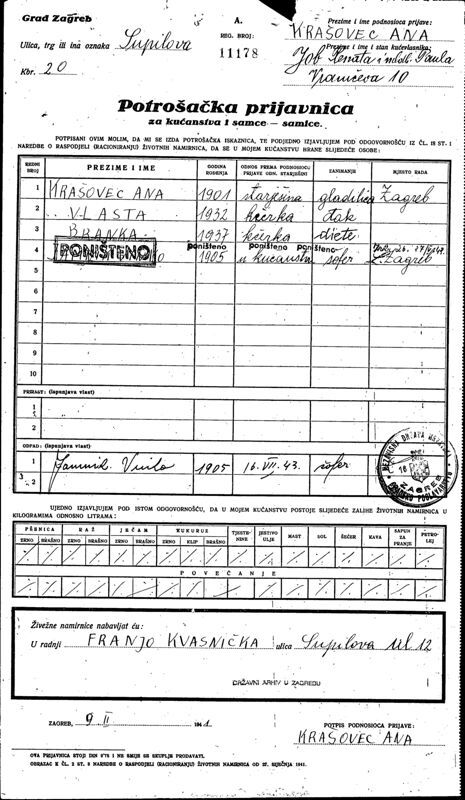 Grad Zagreb
A.
Prezime i ime podnosioca prijave:
KRAŠOVEC ANA
Ulica, trg ili ina oznaka Supilova
REG. BROJ:
11178
Prezime i ime i stan kućevlasnika:
Job Renata i mldb. Paula
Kbr. 20
Vramčeva 10
Potrošačka prijavnica
za kućanstva i samce — samice.
POTPISANI OVIM MOLIM, DA MI SE IZDA POTROŠAČKA ISKAZNICA, TE PODJEDNO IZJAVLJUJEM POD ODGOVORNOŠĆU IZ ČL. 18 ST. 1
NAREDBE O RASPODJELI (RACIONIRANJU) ŽIVOTNIH NAMIRNICA, DA SE U MOJEM KUĆANSTVU HRANE SLIJEDEĆE OSOBE:
REDNI BROJ PREZIME I IME GODINA ROĐENJA ODNOS PREMA PODNOSIOCU PRIJAVE ODN. STARJEŠINI ZANIMANJE MJESTO RADA
1 KRAŠOVEC ANA 1901 starješina gladilica Zagreb
2 VLASTA 1932 kćerka đak
3 BRANKA 1937 kćerka dijete
4 PONIŠTENO poništeno poništeno poništeno
1905 u kućanstvu šofer Zagreb
5
6
7
8
9
10
PRIRAST: (ispunjava vlast)
1
2
OTPAD: (ispunjava vlast)
1 1905 16. VII. 43. šofer
2
NEZAVISNA DRŽAVA HRVATSKA
ZAGREB
UJEDNO IZJAVLJUJEM POD ISTOM ODGOVORNOŠĆU, DA U MOJEM KUĆANSTVU POSTOJE SLIJEDEĆE ZALIHE ŽIVOTNIH NAMIRNICA U
KILOGRAMIMA ODNOSNO LITRAMA:
PŠENICA RAŽ JEČAM KUKURUZ TJESTENINE JESTIVO ULJE MAST SOL ŠEĆER KAVA SAPUN ZA PRANJE PETROLEJ
ZRNO BRAŠNO ZRNO BRAŠNO ZRNO BRAŠNO ZRNO KLIP BRAŠNO
POVEĆANJE
Živežne namirnice nabavljat ću:
U radnji FRANJO KVASNIČKA ulica Supilova ul 12
DRŽAVNI ARHIV U ZAGREBU
ZAGREB, 9 II 1941
POTPIS PODNOSIOCA PRIJAVE:
KRAŠOVEC ANA
OVA PRIJAVNICA STOJI DIN 0'75 I NE SMIJE SE SKUPLJE PRODAVATI.
OBRAZAC K ČL. 2 ST. 2 NAREDBE O RASPODJELI (RACIONIRANJU) ŽIVOTNIH NAMIRNICA OD 27. SIJEČNJA 1941.